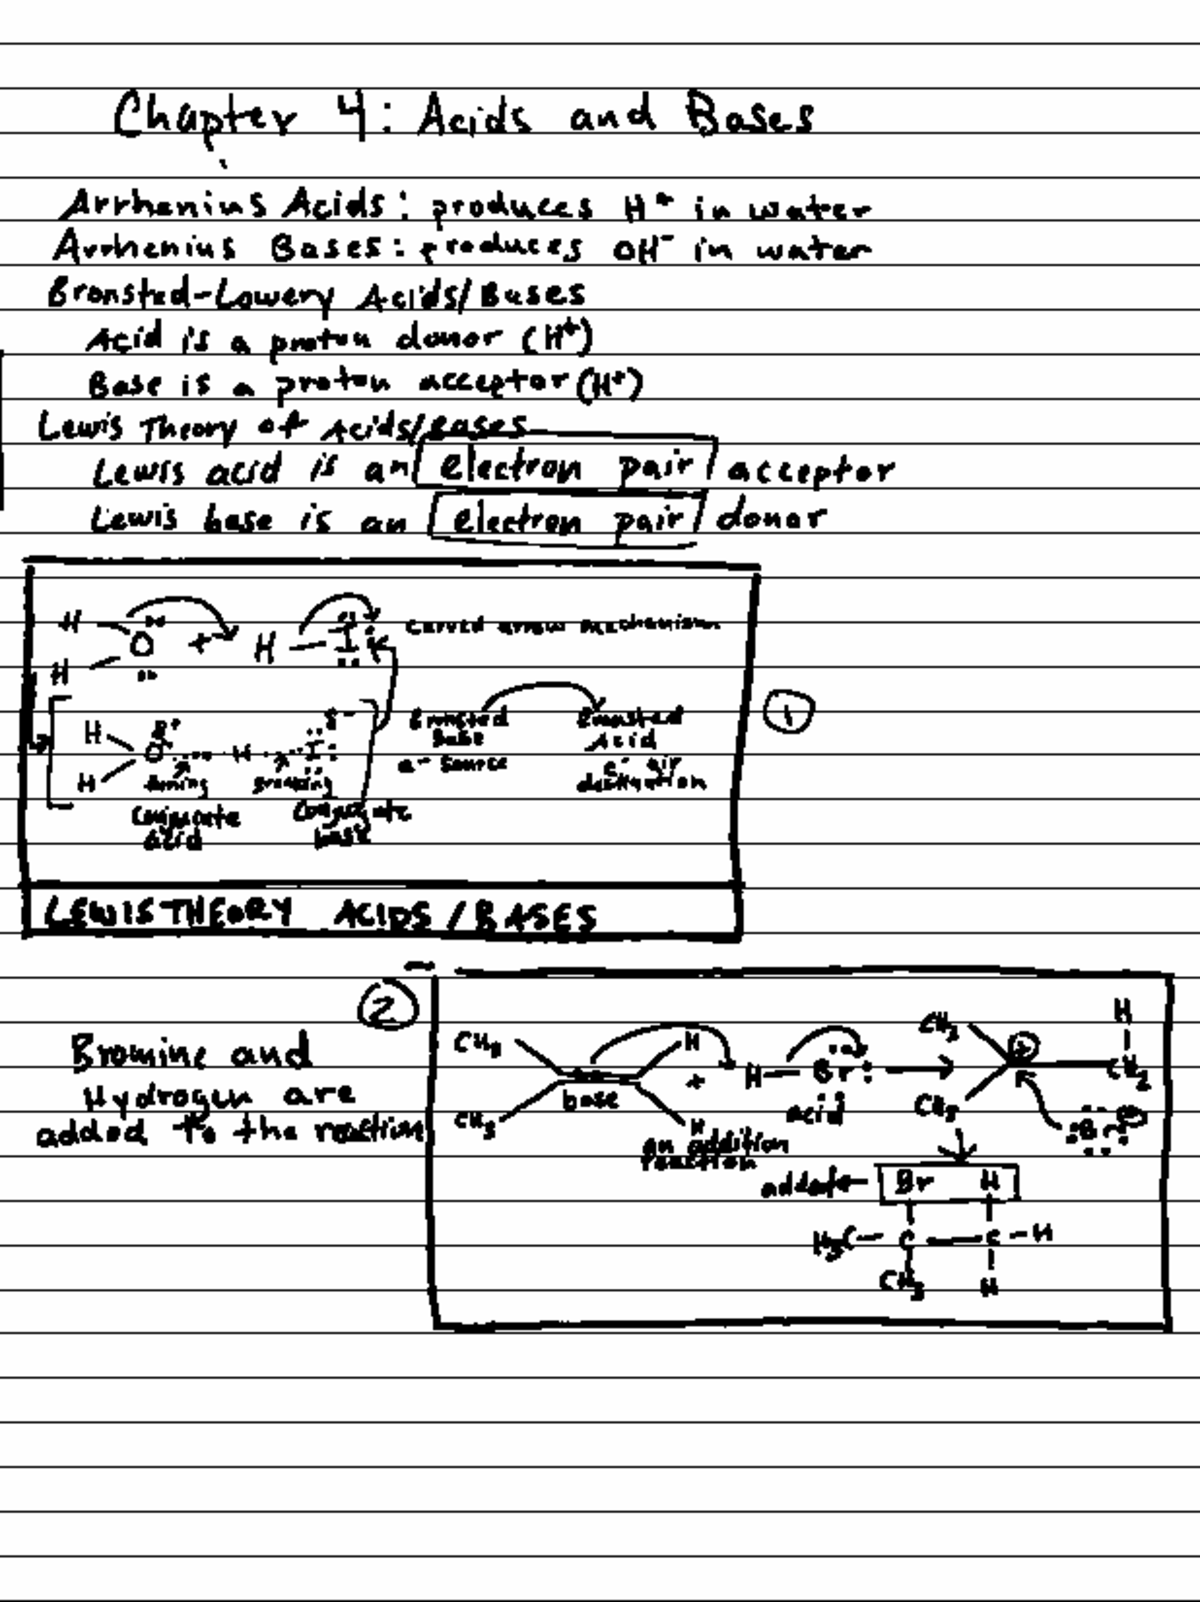 Chapter 4: Acids and Bases
Arrhenius Acids: produces H⁺ in water
Arrhenius Bases: produces OH⁻ in water
Bronsted-Lowery Acids/Bases
Acid is a proton donor (H⁺)
Base is a proton acceptor (H⁺)
Lewis Theory of Acids/Bases
Lewis acid is an electron pair acceptor
Lewis base is an electron pair donor
H O + H – I curved arrow mechanism
H
H O δ⁺ H I δ⁻
H
forming breaking
Conjugate acid
Conjugate base
Bronsted Base e⁻ source
Bronsted Acid e⁻ destination
1
LEWIS THEORY ACIDS/BASES
2
Bromine and
Hydrogen are
added to the reaction
CH₃ H + H – Br
CH₃ H
base
acid
an addition
reaction
CH₃ + H
CH₃ CH₂
Br
Br H
H₃C – C – C – H
CH₃ H